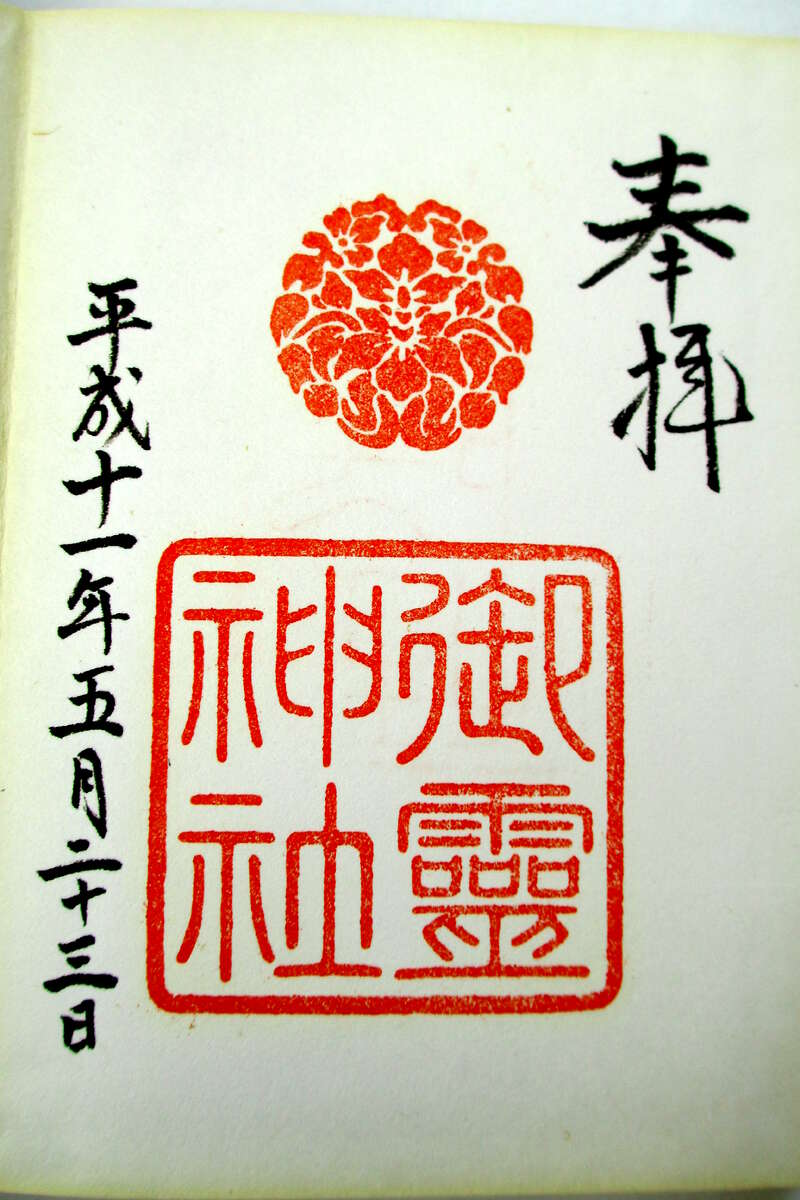 奉拝
御靈
神社
平成十一年五月二十三日